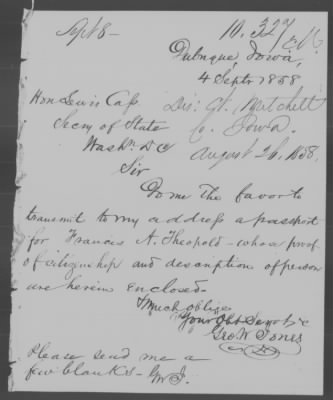 Sept 8-
10.327
Dubuque, Iowa,
4 Septr 1858
Hon Lewis Cass
Dis. Ct. Mitchell
Secry of State
Co. Iowa.
Washn DC
August 26, 1858.
Sir
Do me the favor to
transmit to my address a passport
for Francis A. Theopold - whose proof
of citizenship and description of person
are herein enclosed.
& much oblige
Your Obt Servt &c
Geo. W. Jones
Please send me a
few blanks - GWJ.